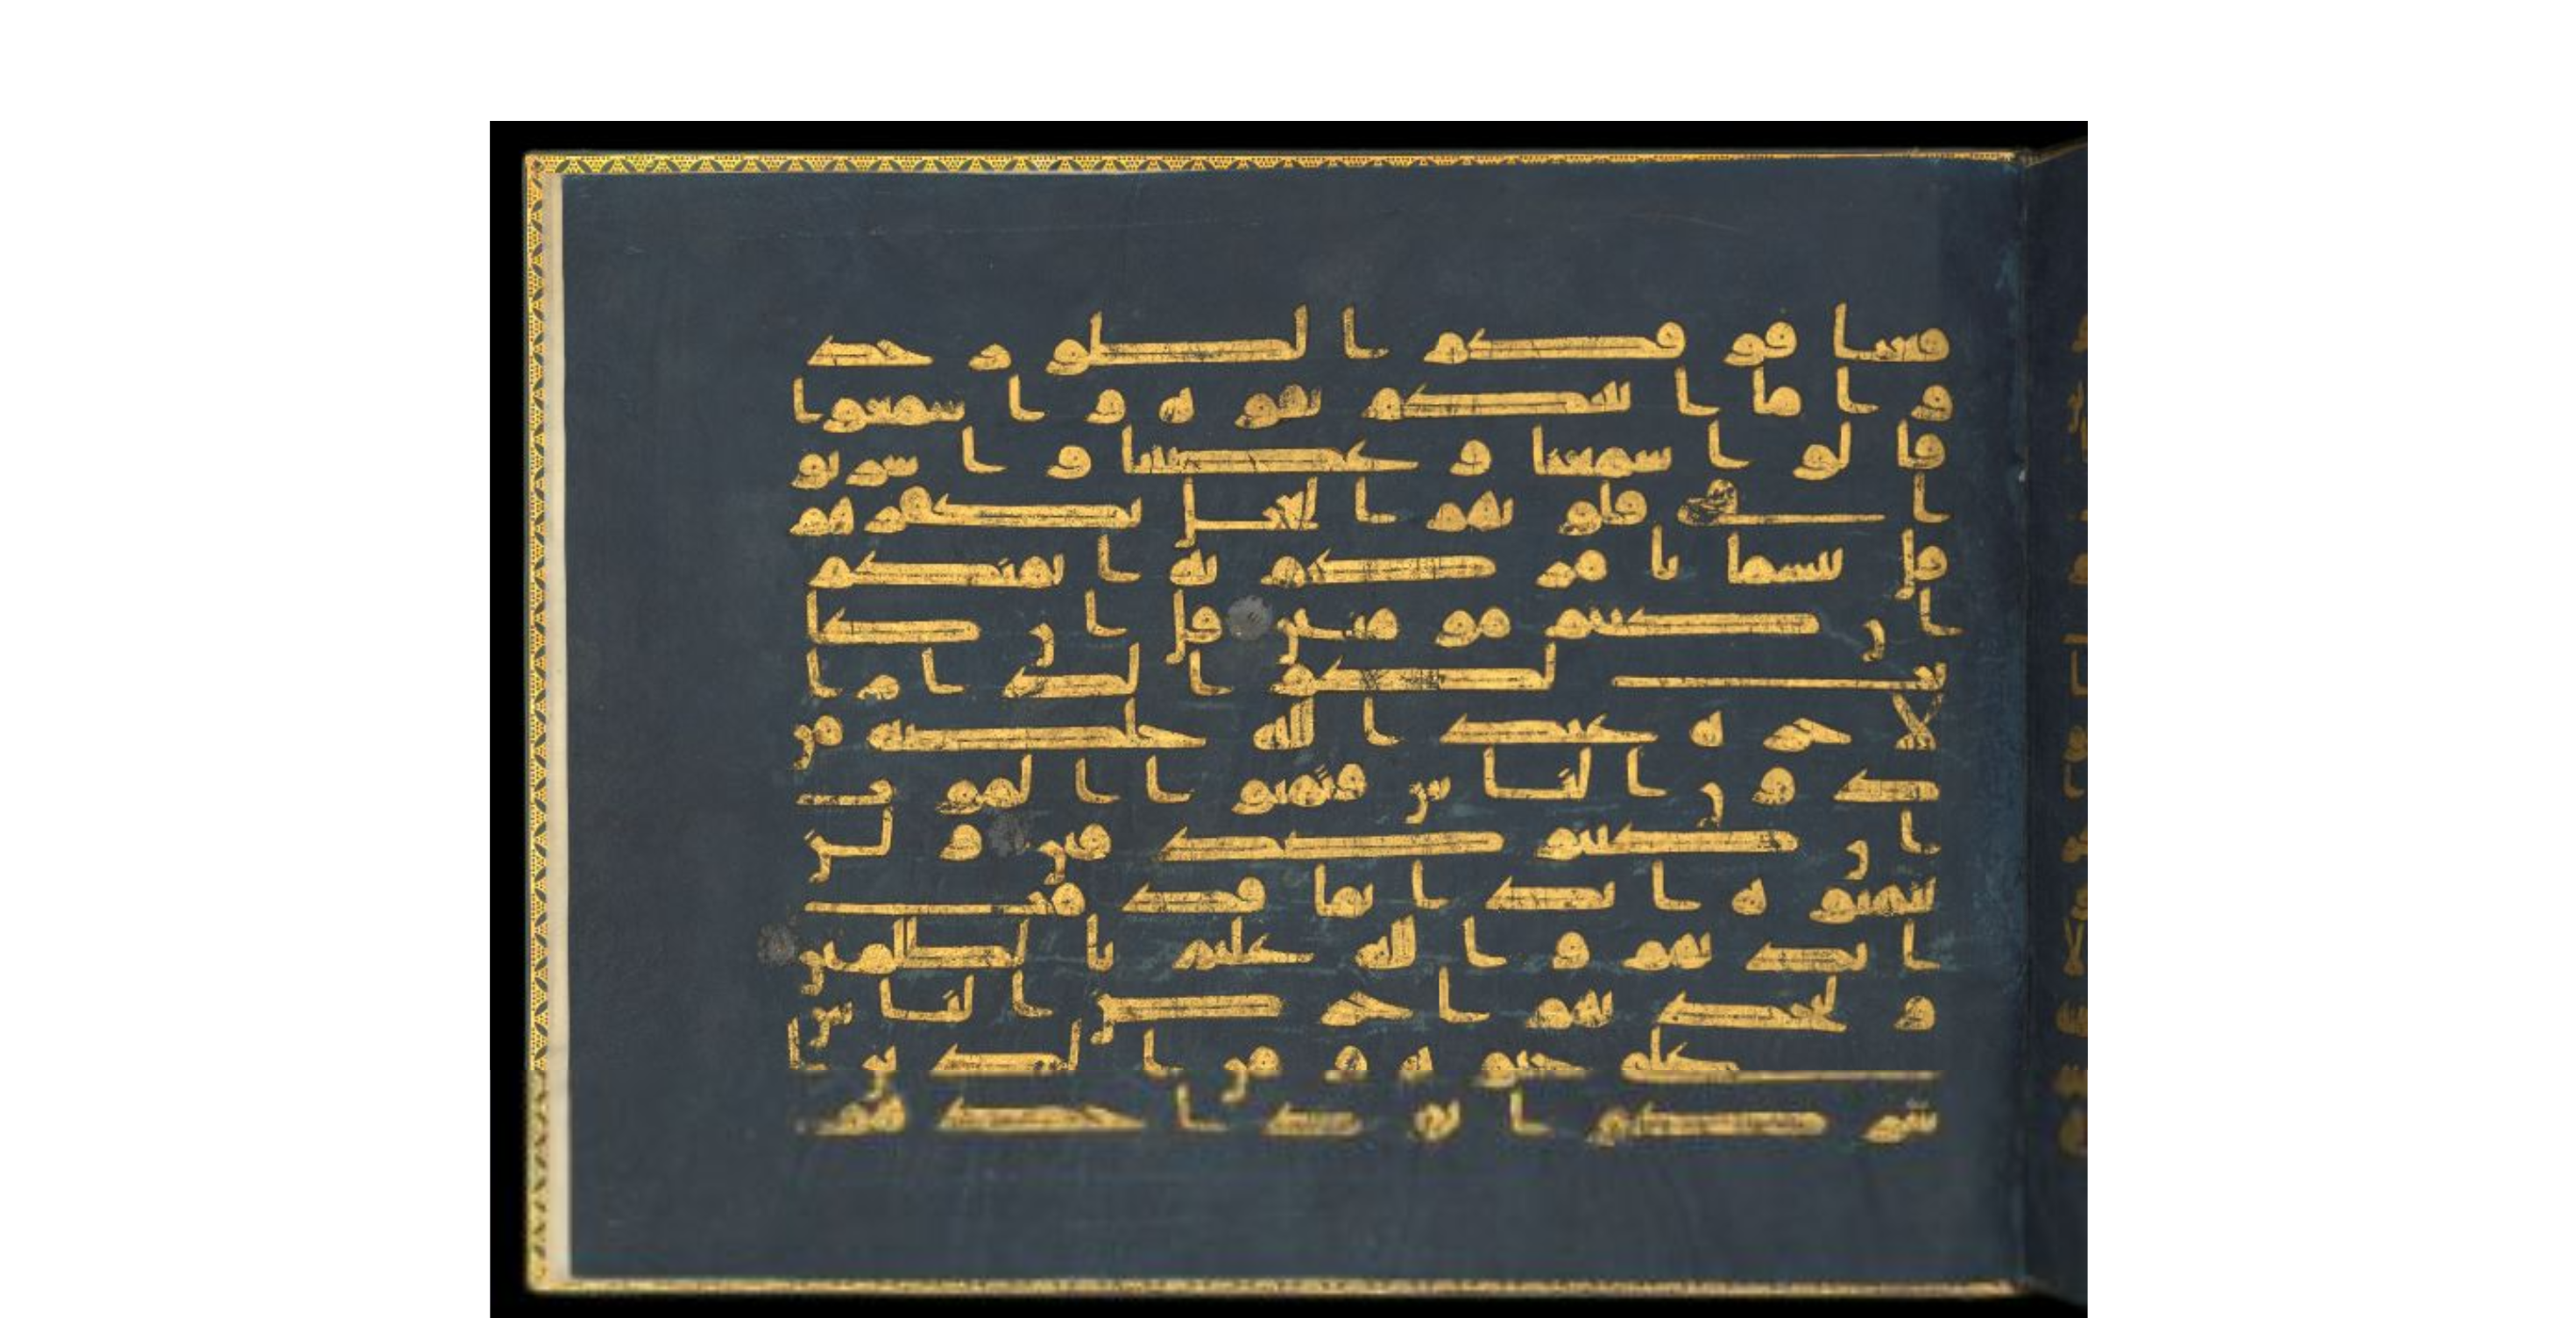 فعنا فوقكم الطور خذ
وا ما اتينكم بقوة واسمعوا
قالوا سمعنا وعصينا واشربو
ا في قلوبهم العجل بكفرهم
قل بئسما يامركم به ايمنكم
ان كنتم مومنين قل ان كا
نت لكم الدار ا
لاخرة عند الله خلصة من
دون الناس فتمنوا الموت
ان كنتم صدقين ولن
يتمنوه ابدا بما قدمت
ايديهم والله عليم بالظلمين
ولتجدنهم احرص الناس
على حيوة ومن الذين ا
شركوا يود احدهم